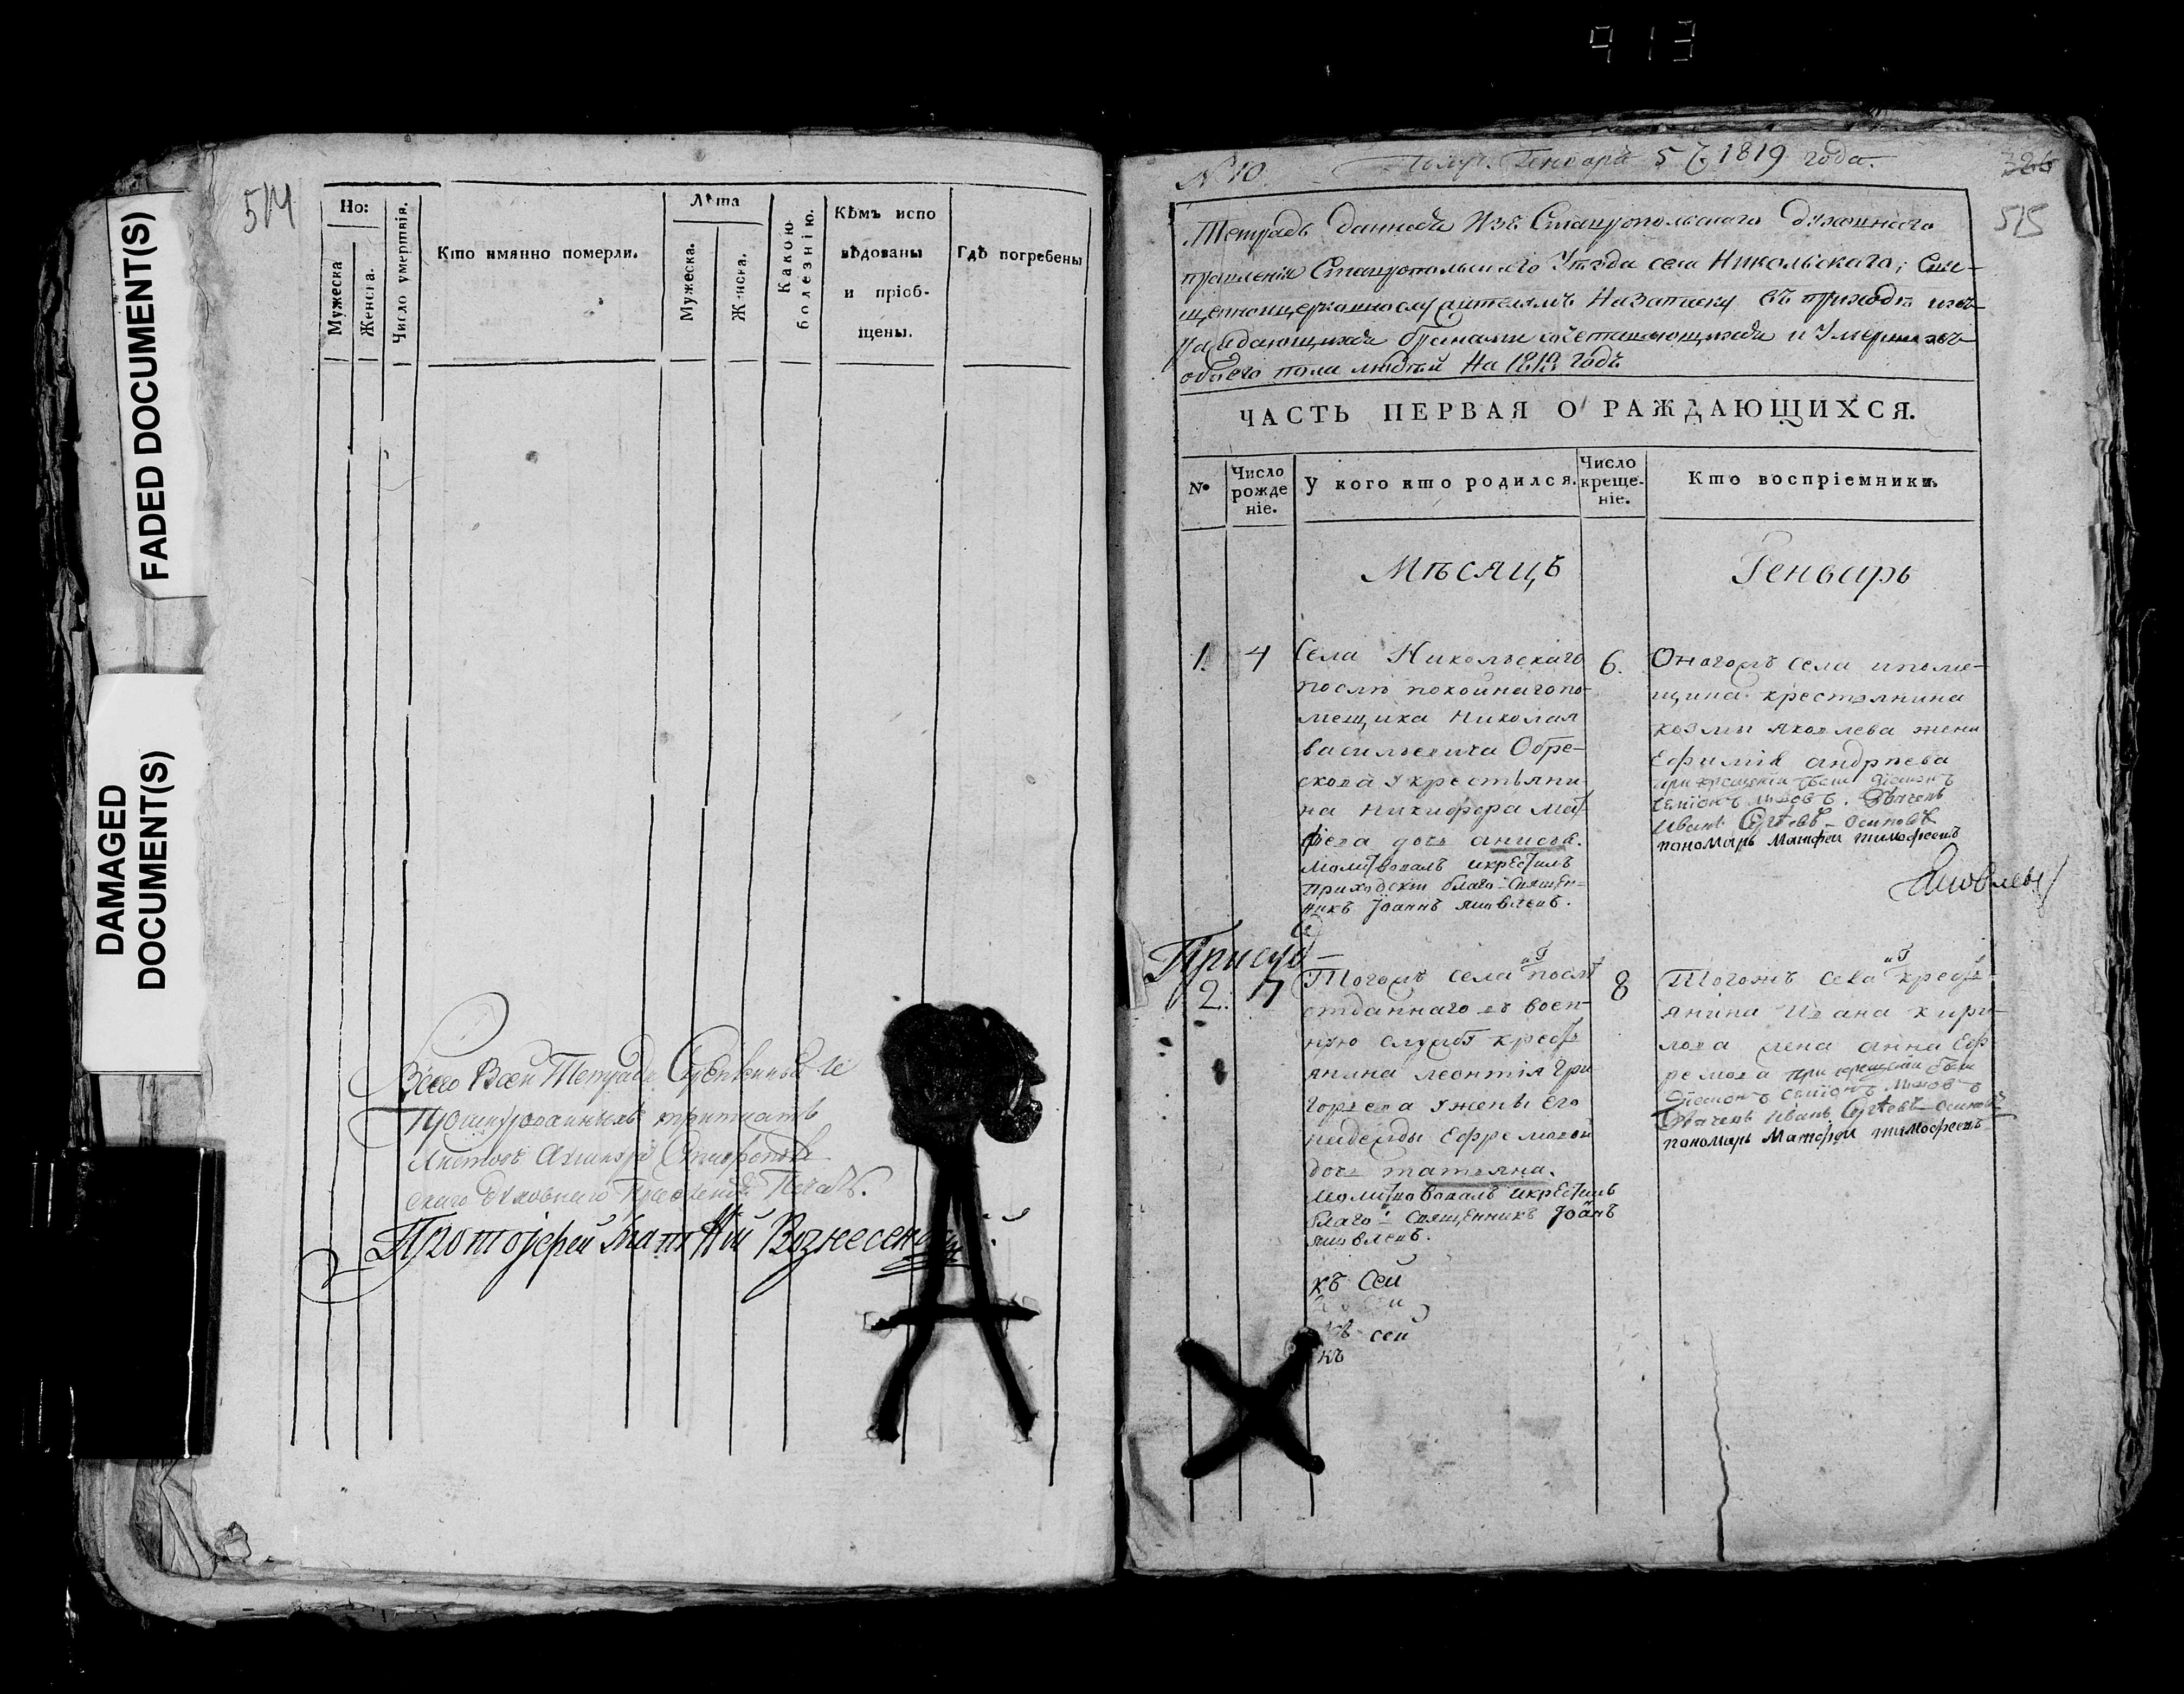 913
FADED DOCUMENT(S)
DAMAGED
DOCUMENT(S)
514
Но:
Мужеска
Женска.
Число умертвія.
Кто имянно померли.
Лѣта
Мужеска.
Женска.
Какою
болезнію.
Кѣмъ испо
вѣдованы
и пріоб-
щены.
Гдѣ погребены
Всего Всей Тетради
тритцать
Листовъ
скаго духовнаго Правленія Печать.
Протоіерей Вознесенскій
№ 10. Получ. Генваря 5 1819 года.
326
515
Тетрадь данная Изъ Ставропольскаго духовнаго
правленія Ставропольскаго Уезда села Никольскаго; Свя-
щенноцерковнослужителямъ Назаписку въ приходѣ ихъ
раждающихся браками сочетавающихся и Умершихъ
обоего пола людей На 1819 годъ
ЧАСТЬ ПЕРВАЯ О РАЖДАЮЩИХСЯ.
№
Число
рожде
ніе.
У кого кто родился.
Число
креще-
ніе.
Кто воспріемники.
Мѣсяцъ Геньварь
1. 4
Села Никольскаго
послѣ покойнаго по-
мещика Николая
васильевича Обре-
скова у крестьяни-
на Никифора Мат-
фѣева дочь анисья.
молитвовалъ икрестилъ
приходски благо- Священ-
никъ Іоаннъ яковлевъ.
6.
Оногожъ села ипоме-
щика крестьянина
козмы яковлева жена
Ефимія андрѣева
при крещеніи были діаконъ
Семіонъ . Дьячекъ
Иванъ Сергѣевъ Осиповъ
пономарь Матфей тимофеевъ
Яковлевъ
Присуд-
2. 7
Тогожъ села послѣ
отданнаго въ воен-
ную службу кресть
янина леонтія Гри
горьева Ужены его
надежды Ефремовой
дочь татьяна.
молитвовалъ икрестилъ
благо- священникъ Іоанъ
яковлевъ.
8
Тогожъ села кресть
янина Ивана кири-
лова жена анна Еф
ремова при крещеніи были
Діаконъ Семіонъ
Дьячекъ Иванъ Сергѣевъ Осиповъ
пономарь Матфей тимофеевъ
къ Сей
сей
къ